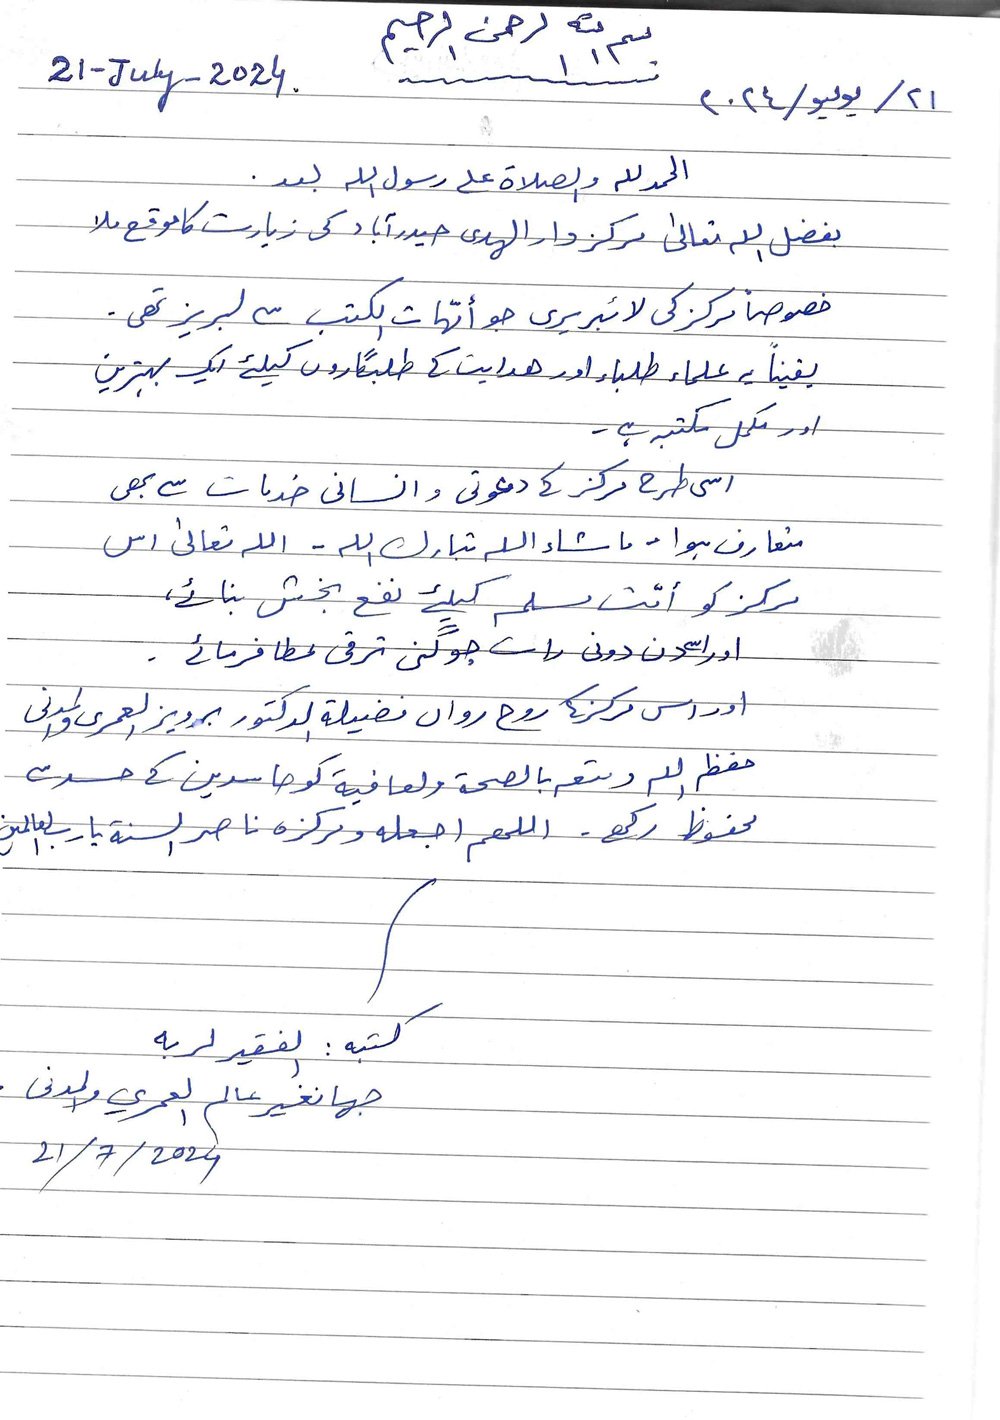 بسم الله الرحمن الرحيم
21-July-2024.
٢١/يوليو/٢٠٢٤
الحمدلله والصلاة على رسول الله بعد.
بفضل الله تعالیٰ مرکز دار الہدی حیدرآباد کی زیارت کا موقع ملا
خصوصاً مرکز کی لائبریری جو أمّهات الکتب سے لبریز تھی۔
یقیناً یہ علماء طلباء اور ھدایت کے طلبگاروں کیلئے ایک بہترین
اور مکمل مکتبہ ہے۔
اسی طرح مرکز کے دعوتی و انسانی خدمات سے بھی
متعارف ہوا۔ ماشاء اللہ تبارک اللہ۔ اللہ تعالیٰ اس
مرکز کو أمّت مسلمہ کیلئے نفع بخش بنائے،
اور اسے دن دونی رات چوگنی ترقی عطا فرمائے۔
اور اس مرکز کے روح رواں فضیلة الدکتور پرویز العمری والمدنی
حفظہ اللہ ومتعہ بالصحة والعافیة کو حاسدین کے حسد سے
محفوظ رکھے۔ اللهم اجعله ومرکزه ناصر السنة یارب العالمین
کتبه: الفقیر لربه
جهانغیر عالم العمري والمدنی.
21/7/2024